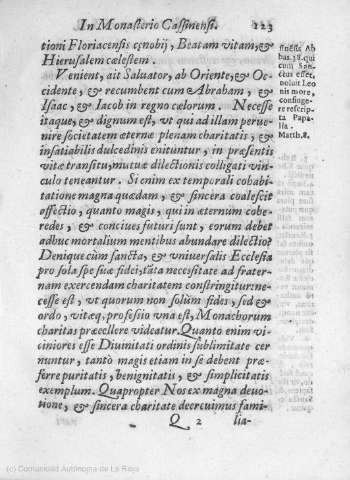 In Monasterio Cassinensi. 123
tioni Floriacensis cœnobij, Beatam vitam, &
Hierusalem cælestem.
Venient, ait Saluator, ab Oriente, & Oc-
cidente, & recumbent cum Abraham, &
Isaac, & Iacob in regno cælorum. Necesse
itaque, & dignum est, vt qui ad illam perue-
nire societatem æternæ plenam charitatis, &
insatiabilis dulcedinis enituntur, in præsentis
vitæ transitu, mutuæ dilectionis colligati vin-
culo teneantur. Si enim ex temporali cohabi-
tatione magna quædam, & sincera coalescit
affectio, quanto magis, qui in æternum cohe-
redes, & conciues futuri sunt, eorum debet
adhuc mortalium mentibus abundare dilectio?
Denique cùm sancta, & vniuersalis Ecclesia
pro sola spe suæ fidei, tāta necesitate ad frater-
nam exercendam charitatem constringitur: ne-
cesse est, vt quorum non solùm fides, sed &
ordo, vitæq. professio vna est, Monachorum
charitas præcellere videatur. Quanto enim vi-
ciniores esse Diuinitati ordinis sublimitate cer-
nuntur, tantò magis etiam in se debent præ-
ferre puritatis, benignitatis, & simplicitatis
exemplum. Quapropter Nos ex magna deuo-
tione, & sincera charitate decreuimus fami-
Q 2 lia-
Ab
bas.
cum San-
ctus esset,
noluit Leo
nis more,
confinge-
re rescrip-
ta Papa-
lia.
Matth. 8.
(c) Comunidad Autónoma de La Rioja